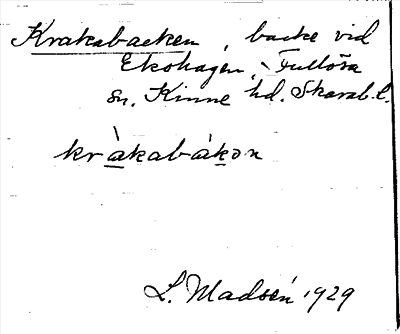 Krakabacken, backe vid
Ekohagen, Fullösa
sn. Kinne hd. Skarab. l.
kràkabàkon
L. Madsén 1929